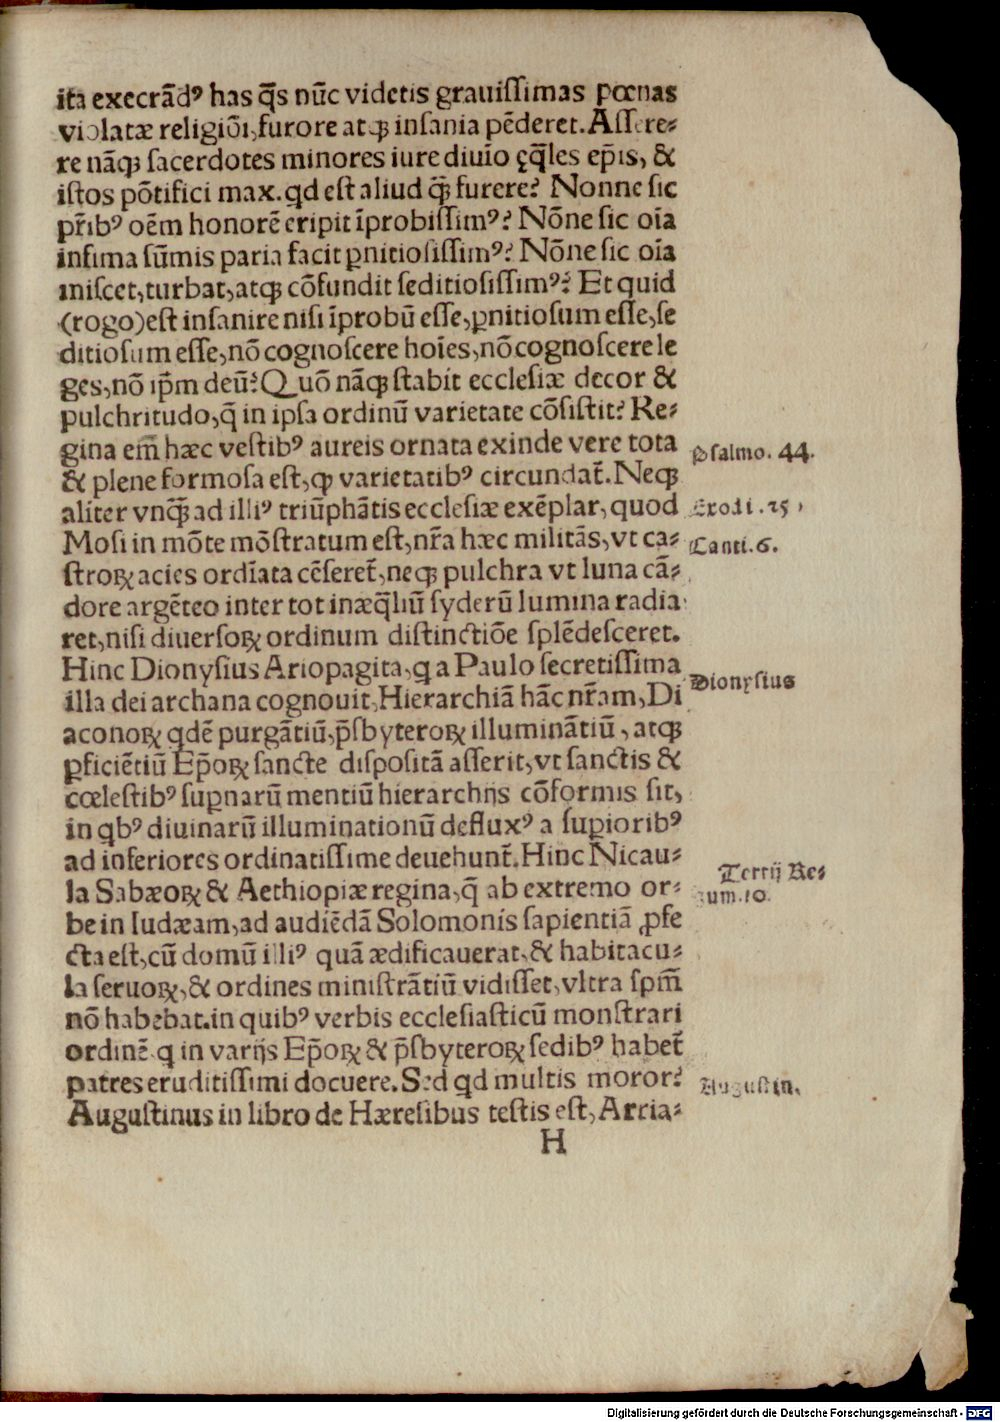 ita execrãdꝰ has q̃s nũc videtis grauiſſimas pœnas
violatæ religiõi, furore atqꝫ inſania pẽderet. Aſſere⸗
re nãqꝫ ſacerdotes minores iure diuĩo ęq̃les ep̃is, &
iſtos põtifici max. qd eſt aliud q̃ꝫ furere? Nonne ſic
pr̃ibꝰ oẽm honorẽ eripit ĩprobiſſimꝰ? Nõne ſic oĩa
infima ſũmis paria facit ꝑnitioſiſſimꝰ? Nõne ſic oĩa
miſcet, turbat, atqꝫ cõfundit ſeditioſiſſimꝰ? Et quid
(rogo) eſt inſanire niſi ĩprobũ eſſe, ꝑnitioſum eſſe, ſe
ditioſum eſſe, nõ cognoſcere hoĩes, nõ cognoſcere le
ges, nõ ip̃m deũ? Quõ nãqꝫ ſtabit eccleſiæ decor &
pulchritudo, q̃ in ipſa ordinũ varietate cõſiſtit? Re⸗
gina em̃ hæc veſtibꝰ aureis ornata exinde vere tota
& plene formoſa eſt, ꝙ varietatibꝰ circundat̃. Neqꝫ
aliter vnq̃ꝫ ad illiꝰ triũphãtis eccleſiæ exẽplar, quod
Moſi in mõte mõſtratum eſt, nr̃a hæc militãs, vt ca⸗
ſtroꝝ acies ordĩata cẽſeret̃, neqꝫ pulchra vt luna cã⸗
dore argẽteo inter tot inæq̃liũ ſyderũ lumina radia
ret, niſi diuerſoꝝ ordinum diſtinctiõe ſplẽdeſceret.
Hinc Dionyſius Ariopagita, q a Paulo ſecretiſſima
illa dei archana cognouit, Hierarchiã hãc nr̃am, Di
aconoꝝ qdẽ purgãtiũ, p̃ſbyteroꝝ illuminãtiũ, atqꝫ
ꝑficiẽtiũ Ep̃oꝝ ſancte diſpoſitã aſſerit, vt ſanctis &
cœleſtibꝰ ſuꝑnarũ mentiũ hierarchijs cõformis ſit,
in qbꝰ diuinarũ illuminationũ defluxꝰ a ſuꝑioribꝰ
ad inferiores ordinatiſſime deuehunt̃. Hinc Nicau⸗
la Sabæoꝝ & Aethiopiæ regina, q̃ ab extremo or⸗
be in Iudæam, ad audiẽdã Solomonis ſapientiã ꝓfe
cta eſt, cũ domũ illiꝰ quã ædificauerat, & habitacu⸗
la ſeruoꝝ, & ordines miniſtrãtiũ vidiſſet, vltra ſpm̃
nõ habebat. in quibꝰ verbis eccleſiaſticũ monſtrari
ordinẽ q in varijs Ep̃oꝝ & p̃ſbyteroꝝ ſedibꝰ habet̃
patres eruditiſſimi docuere. Sed qd multis moror?
Auguſtinus in libro de Hæreſibus teſtis eſt, Arria⸗
H
Pſalmo. 44.
Exodi. 25
Canti. 6.
Dionyſius
Tertij Re⸗
gum. 10.
Auguſtin.